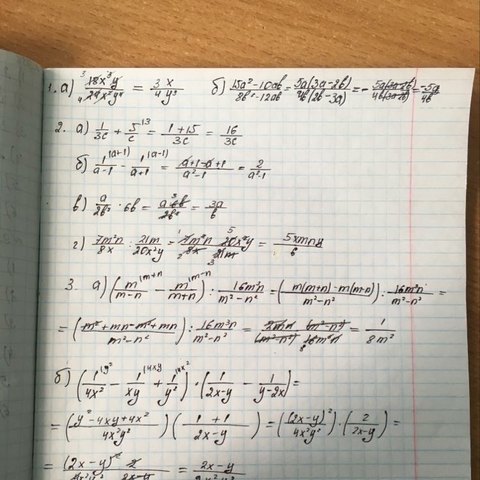 1. а) 18x³y / 24x²y⁴ = 3x / 4y³ б) 15a² - 10ab / 8b² - 12ab = 5a(3a-2b) / 4b(2b-3a) = - 5a(3a-2b) / 4b(3a-2b) = -5a / 4b
2. а) 1/3c + 5/c = 1+15 / 3c = 16 / 3c
б) 1/a-1 - 1/a+1 = a+1-a+1 / a²-1 = 2 / a²-1
в) a/2b² · 6b = a 6b / 2b² = 3a / b
г) 7m²n / 8x : 21m / 20x²y = 7m²n 20x²y / 8x 21m = 5xmny / 6
3. а) (m/m-n - m/m+n) : 16m³n / m²-n² = (m(m+n) - m(m-n) / m²-n²) : 16m³n / m²-n² =
= (m² + mn - m² + mn / m²-n²) : 16m³n / m²-n² = 2mn (m²-n²) / (m²-n²) 16m³n = 1 / 8m²
б) (1/4x² - 1/xy + 1/y²) · (1/2x-y - 1/y-2x) =
= (y² - 4xy + 4x² / 4x²y²) (1+1 / 2x-y) = ((2x-y)² / 4x²y²) · (2 / 2x-y) =
= (2x-y)² 2 / 4x²y² 2x-y = 2x-y / 2x²y²